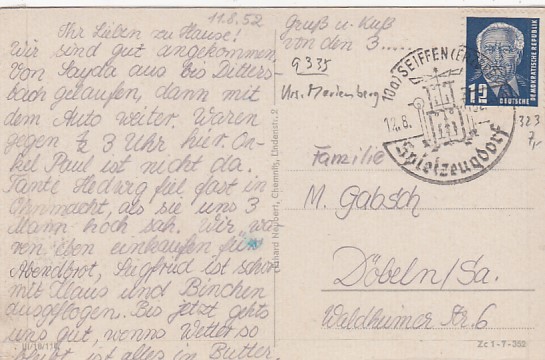 11.8.52
Ihr Lieben zu Hause!
Wir sind gut angekommen.
Von Sayda aus bis Ditters-
bach gelaufen, dann mit
dem Auto weiter. Waren
gegen ½ 3 Uhr hier. On-
kel Paul ist nicht da.
Tante Hedwig fiel fast in
Ohnmacht, als sie uns 3
Mann hoch sah. Wir wa-
ren eben einkaufen fürs
Abendbrot, Siegfried ist schon
mit Klaus und Binchen
ausgeflogen. Bis jetzt gehts
uns gut, wenns Wetter so
bleibt ist alles in Butter.
Gruß u. Kuß
von den 3.....
9335
Krs. Marienberg
(10a) SEIFFEN (ERZ
12.8.
Spielzeugdorf
12
DEUTSCHE
DEMOKRATISCHE REPUBLIK
323
7,-
Familie
M. Gabsch
Döbeln/Sa.
Waldheimer Str. 6
Erhard Neubert, Chemnitz, Lindenstr. 2
III/18/116
Zc 1-7-352